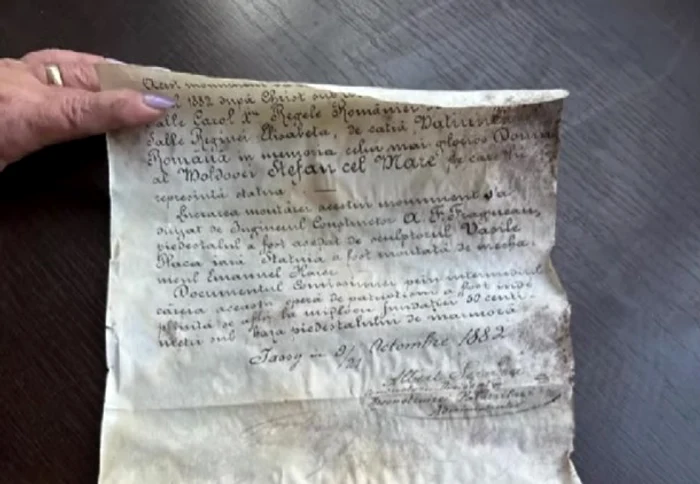 Acest monument
1882 după Christ sub
Sale Carol Iu Regele României
Salle Reginei Elisabeta, de catră Națiunea
Română in memoria celui mai glorios Domn
al Moldovei Stefan cel Mare pe care
represintă statua
Lucrarea montărei acestui monument s'a
dirijat de Inginerul Constructor A. F.
piedestalul a fost asedat de sculptorul Vasile
Placa iară Statuia a fost montată de mecha-
nicul Emanuel
Documentul Comissiunei prin intermediul
căreia această operă de patriotism a fost inde-
plinită se află la mijlocul fundației 50 centi-
metri sub baza piedestalului de marmoră
Jassy in 9/21 Octombre 1882